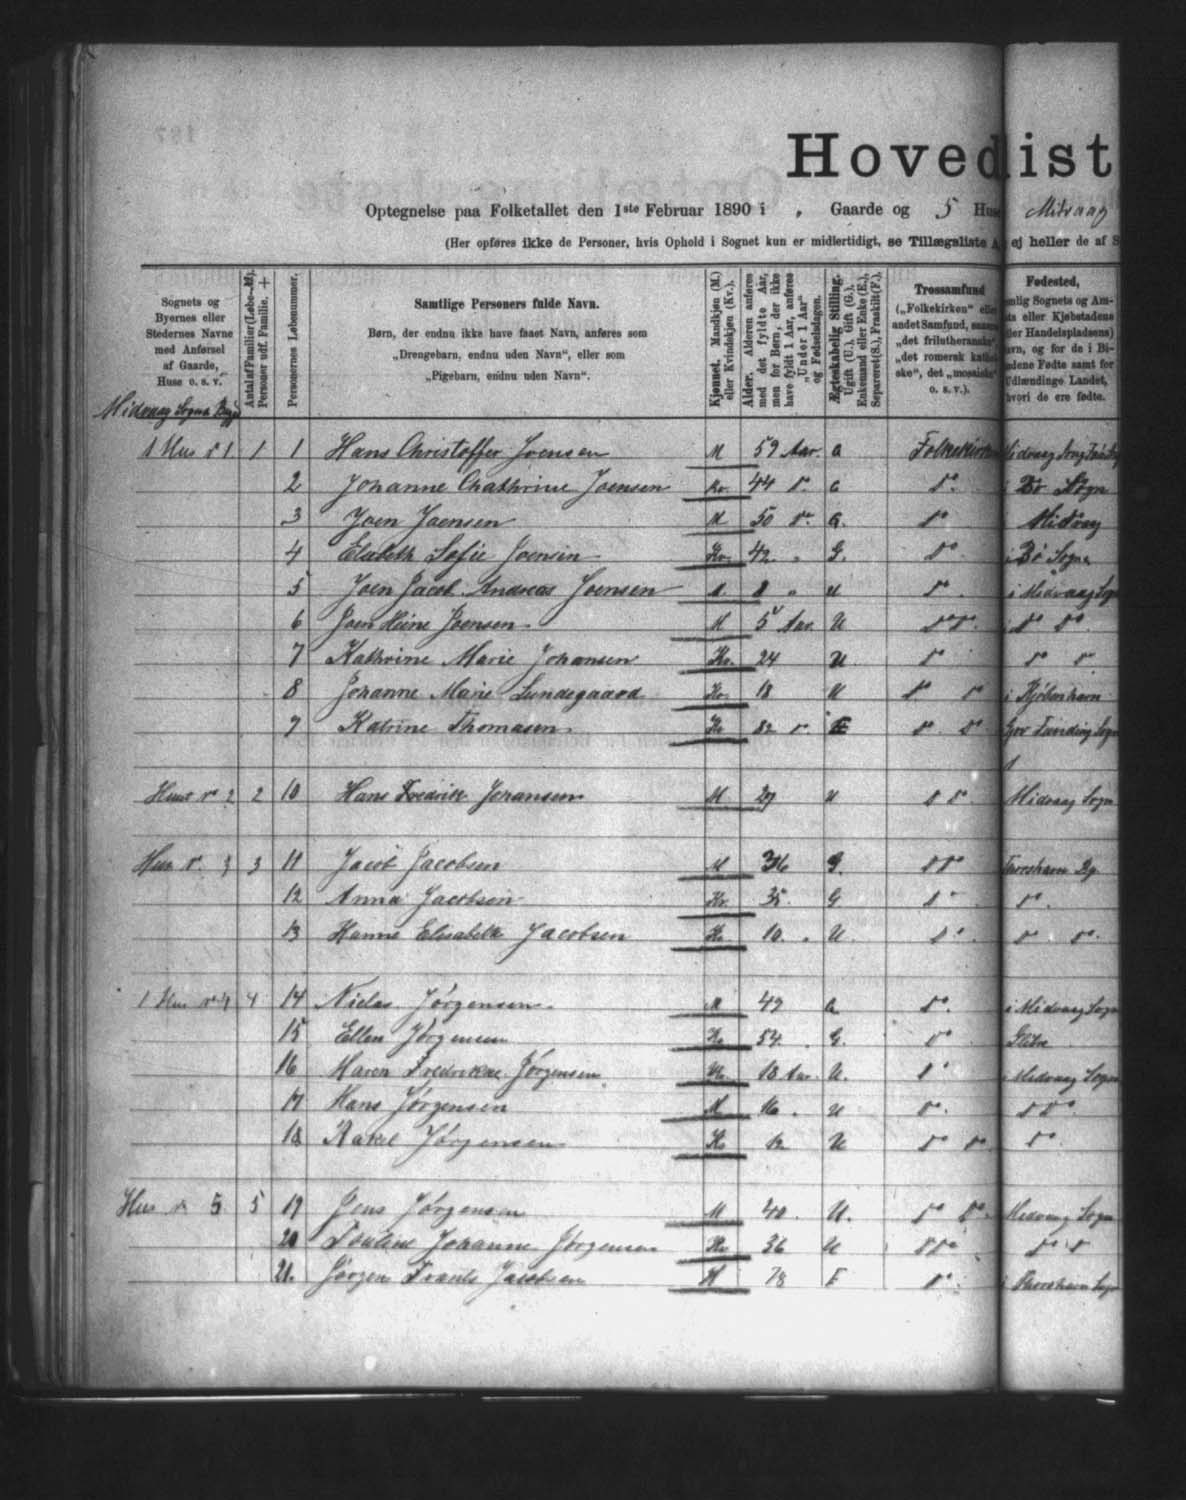 Hoved ist
Optegnelse paa Folketallet den 1ste Februar 1890 i „ Gaarde og 5 Huse Midvaag
(Her opføres ikke de Personer, hvis Ophold i Sognet kun er midlertidigt, se Tillægsliste A, ej heller de af S
Sognets og Byernes eller Stedernes Navne med Anførsel af Gaarde, Huse o. s. v.
Personernes Løbenummer.
Samtlige Personers fulde Navn.
Børn, der endnu ikke have faaet Navn, anføres som
„Drengebarn, endnu uden Navn“, eller som
„Pigebarn, endnu uden Navn“.
Kjønnet. Mandkjøn (M.) eller Kvindekjøn (Kv.).
Alder. Alderen anføres med det fyldte Aar, men for Børn, der ikke have fyldt 1 Aar, anføres „Under 1 Aar“ og Fødselsdagen.
Ægteskabelig Stilling. Ugift (U.), Gift (G.), Enkemand eller Enke (E.), Separeret (S.), Fraskilt (F.).
Trossamfund
(„Folkekirken“ eller
andet Samfund, saasom
„det frilutheranske“,
„det romersk kathol
ske“, det „mosaiske“
o. s. v.).
Fødested,
Midvaag Sogn Bygd
1 Hus № 1 1 1 Hans Christoffer Joensen M 59 Aar G Folkekirken Midvaag Sogn
2 Johanne Chathrine Joensen Kv. 44 d° G d° i Bø Sogn
3 Joen Joensen M 50 d° G. d° Midvag
4 Elsebeth Sofie Joensen Kv. 42 „ G. d° i Bø Sogn
5 Joen Jacob Andreas Joensen M. 8 „ U d° i Midvaag Sogn
6 Joen Heine Joensen M 5 Aar U d° d° i d° d°
7 Kathrine Marie Johansen Kv. 24 U d° d° d°
8 Johanne Marie Lundegaard Kv. 18 U d° d° i Kjöbenhavn
9 Katrine Thomasen Kv 82 d° E d° d° Sogn
Huus № 2 2 10 Hans Fredrik Johansen M 27 U d d° Midvaag Sogn
Hus № 3 3 11 Jacob Jacobsen M 36 G. d d° Thorshavn
12 Anna Jacobsen Kv. 35 G d° d°
13 Hanne Elisabeth Jacobsen Kv. 10 „ U. d° d° d°
1 Hus № 4 4 14 Niclas Jørgensen M 49 G d° i Midvaag Sogn
15 Ellen Jørgensen Kv 54 G. d°
16 Maren Fredrikke Jørgensen Kv. 18 Aar U. d° i Midvaag Sogn
17 Hans Jørgensen M 16 „ U d° d d°
18 Rakel Jørgensen Kv 12 U d° d° d°
Hus № 5 5 19 Jens Jørgensen M 40 U. d° d° Midvaag Sogn
20 Johanne Jørgensen Kv. 36 U d d° d° d
21. Jørgen Frants Jacobsen M 78 E d° i Thorshavn Sogn